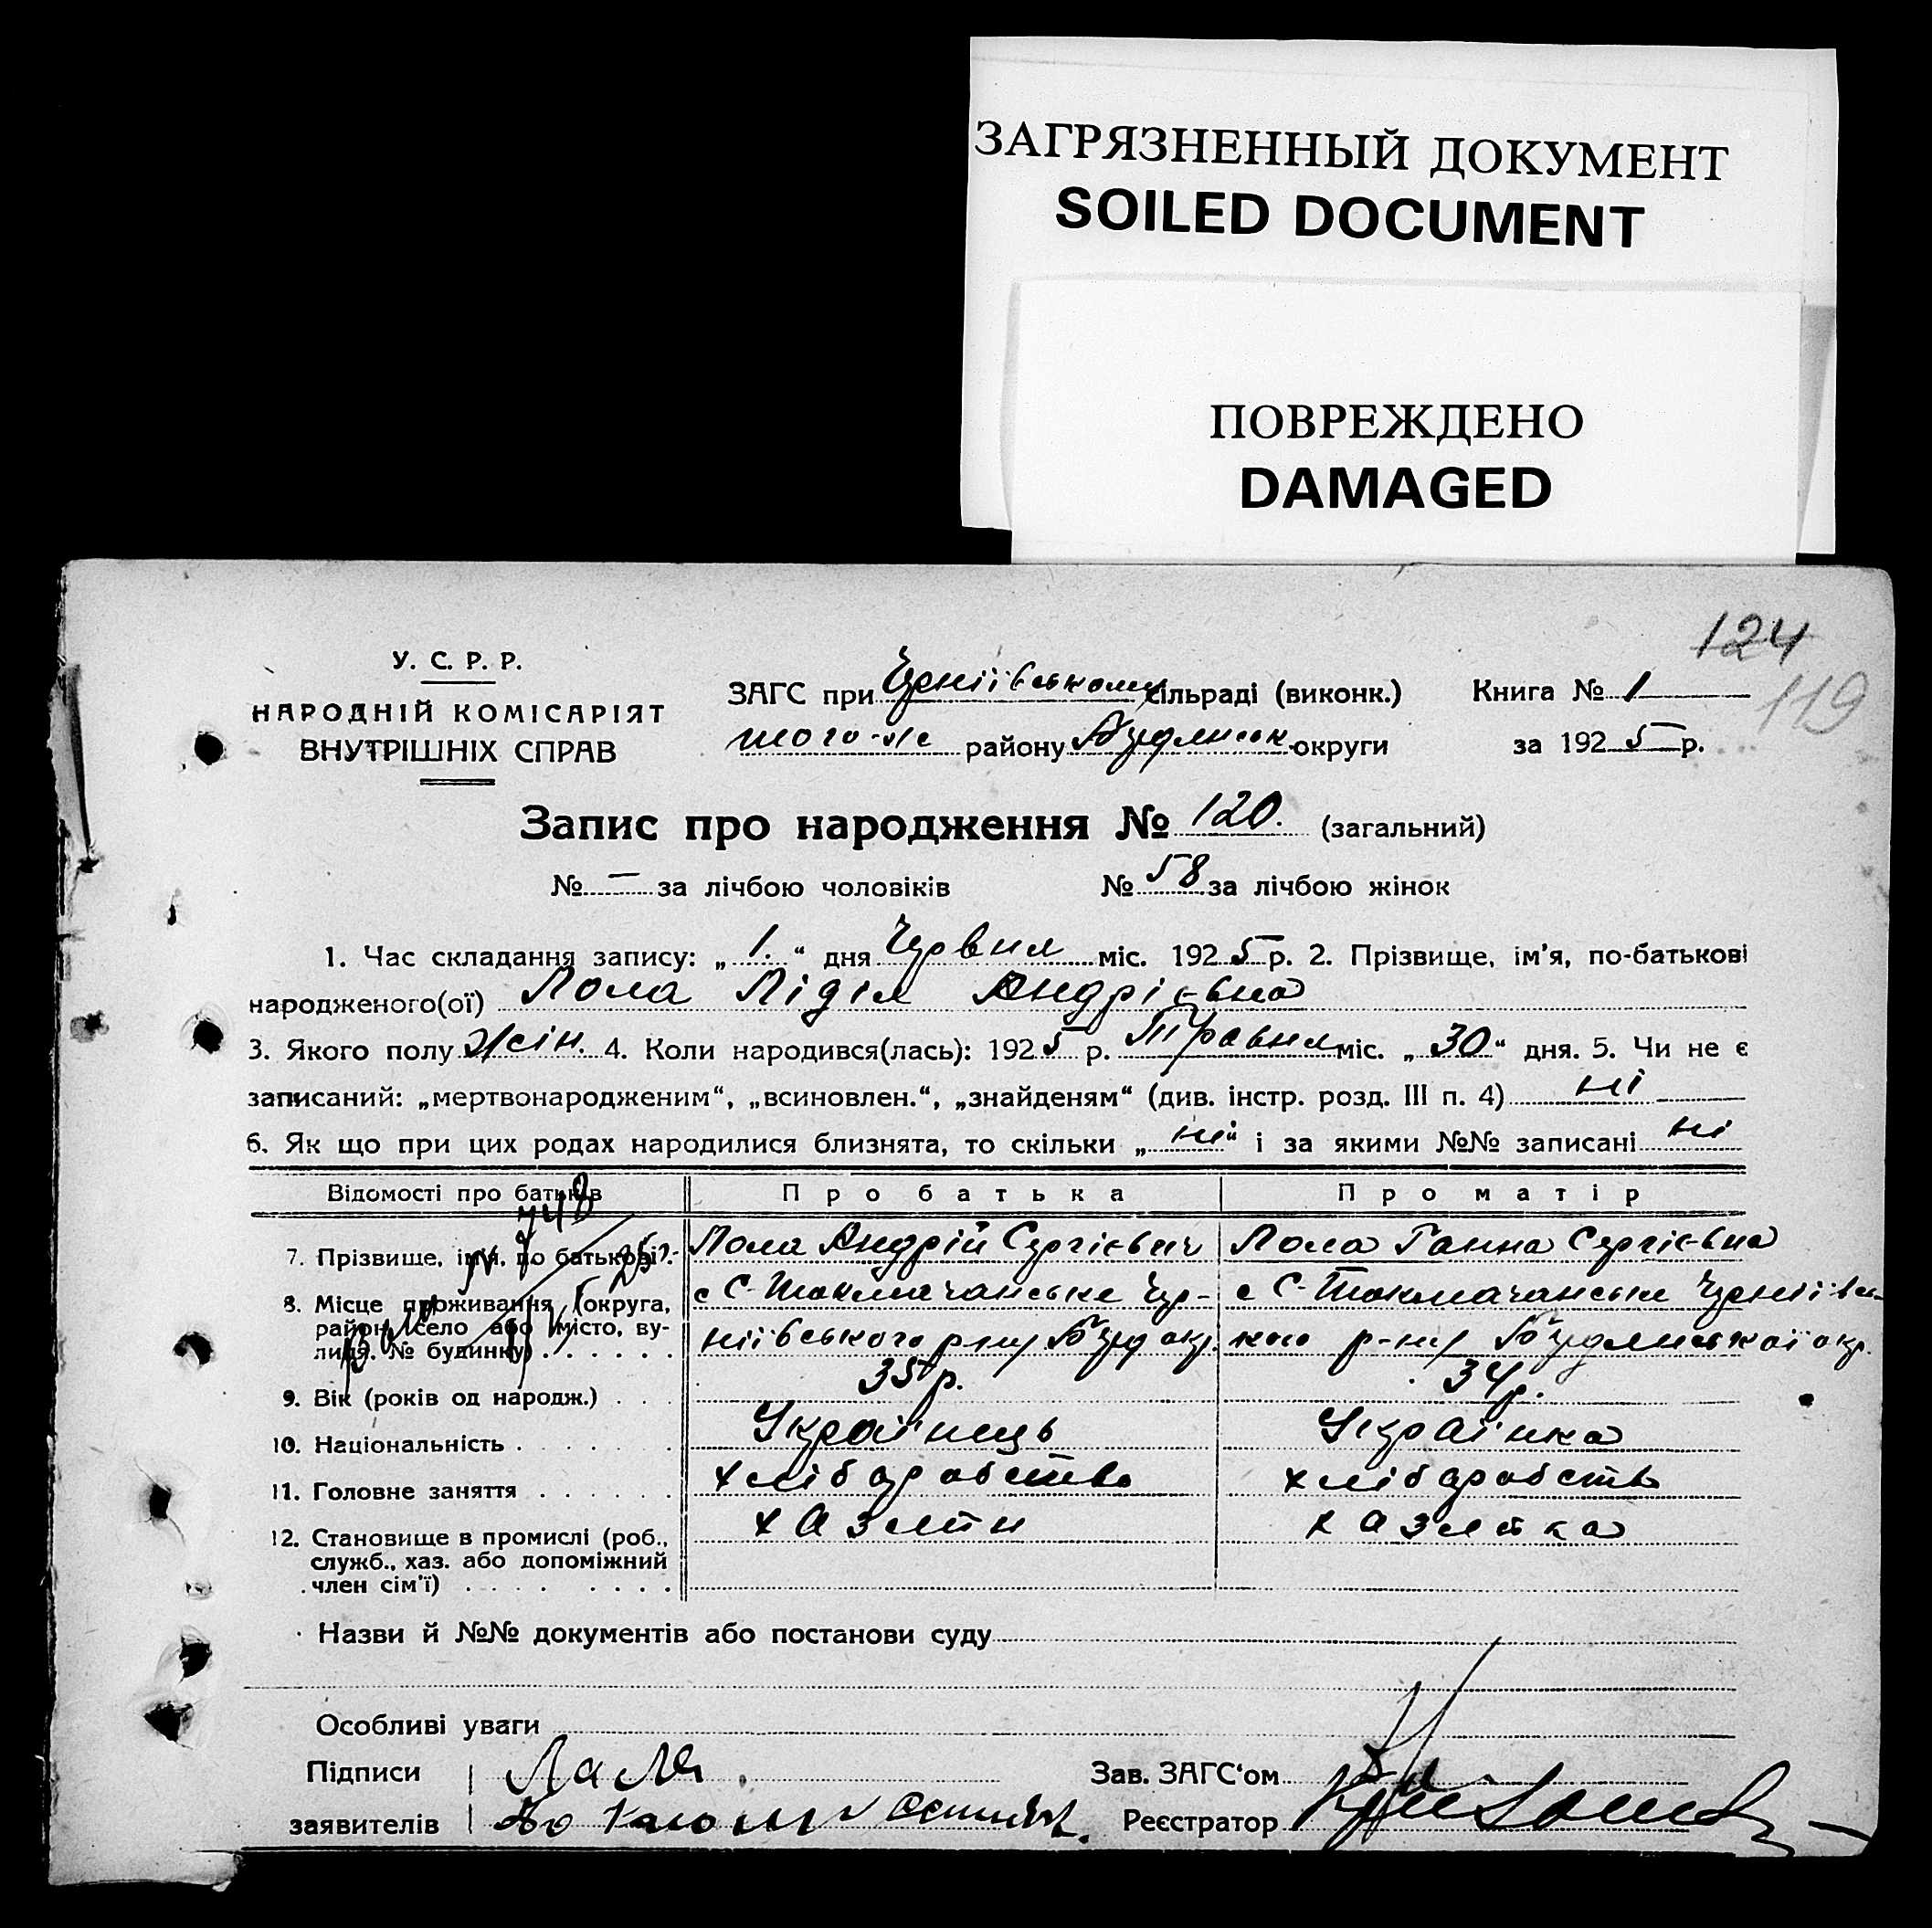 ЗАГРЯЗНЕННЫЙ ДОКУМЕНТ
SOILED DOCUMENT
ПОВРЕЖДЕНО
DAMAGED
124
119
У. С. Р. Р.
НАРОДНІЙ КОМІСАРІЯТ
ВНУТРІШНІХ СПРАВ
ЗАГС при Черніівському сільраді (виконк.) Книга № 1
того-же району Бердянськ. округи за 1925 р.
Запис про народження № 120. (загальний)
№ — за лічбою чоловіків № 58 за лічбою жінок
1. Час складання запису: „ 1. “ дня Червня міс. 1925 р. 2. Прізвище, ім'я, по-батькові
народженого(ої) Лола Лідія Андрієвна
3. Якого полу жін. 4. Коли народився(лась): 1925 р. Травня міс. „ 30 “ дня. 5. Чи не є
записаний: „мертвонародженим“, „всиновлен.“, „знайденям“ (див. інстр. розд. III п. 4) ні
6. Як що при цих родах народилися близнята, то скільки „ ні “ і за якими №№ записані ні
Відомості про батьків Про батька Про матір
7. Прізвище, ім'я, по батькові Лола Андрій Сергієвич Лола Ганна Сергієвна
8. Місце проживання (округа, район, село або місто, вулиця, № будинку) с С-Токмачанське Черніівського р-ну Берд окр. с С-Токмачанське Черніівського р-ну Бердянської окр.
9. Вік (років од народж.) 35 р. 34 р.
10. Національність Українець Українка
11. Головне заняття хліборобство хліборобств
12. Становище в промислі (роб., служб., хаз. або допоміжний член сім'ї) хазяїн хазяйка
Назви й №№ документів або постанови суду
Особливі уваги
Підписи Лола Зав. ЗАГС‘ом
заявителів Реєстратор